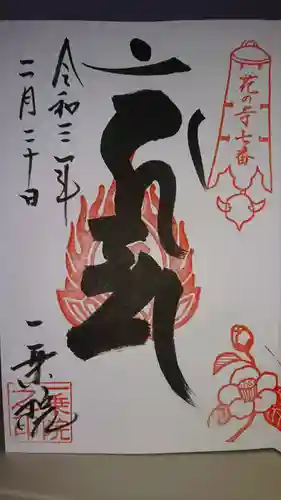 花の寺七番
令和三年
二月二十日
一乗院